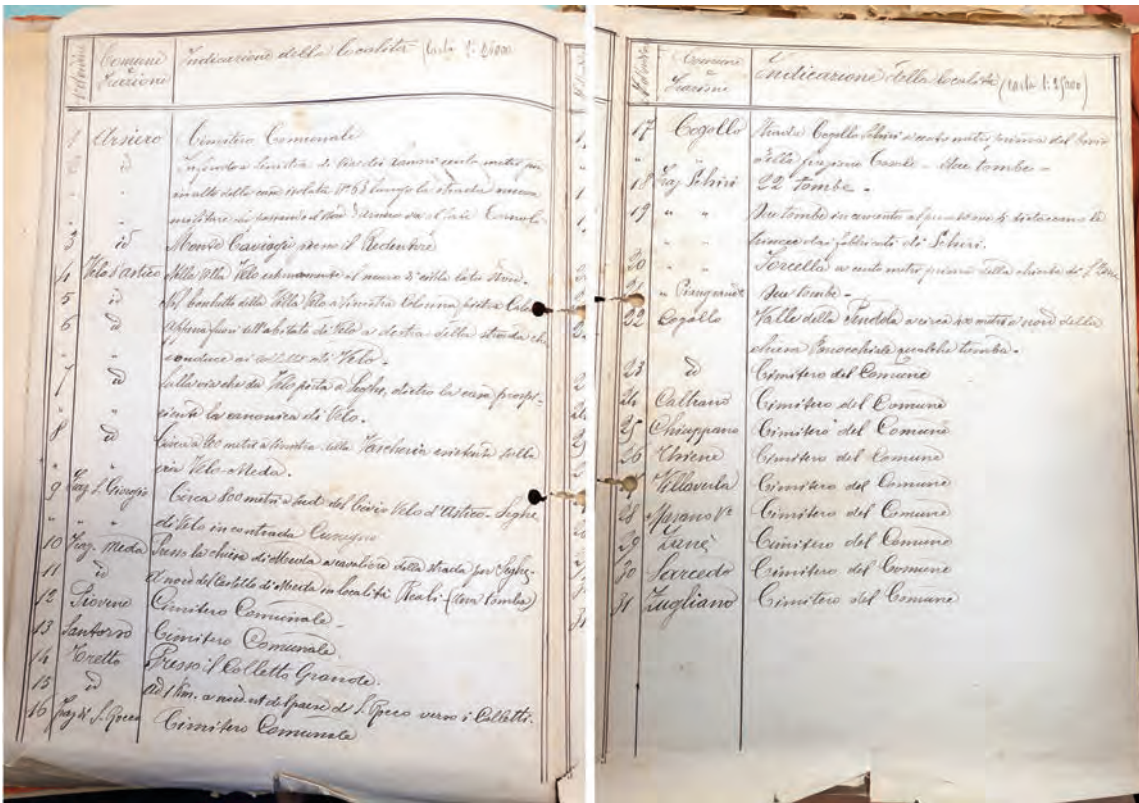 Comune e Frazione Indicazione della località (carta 1:25000)
1 Arsiero Cimitero Comunale
2 id
a monte della casa isolata N° 63 lungo la strada nuova
militare
3 id Monte Caviogio verso il Redentore
4 Velo d'Astico Villa Velo al muro di cinta lato
5 id della Villa Velo a sinistra
6 id Appena fuori dell'abitato di Velo a destra della strada che
" conduce ai di Velo.
7 id Sulla via che da Velo porta a Seghe, dietro la casa prospi-
" ciente la canonica di Velo.
8 id Circa a 200 metri a sinistra della esistente sulla
" via Velo-Meda.
9 Fraz. S. Giorgio Circa 800 metri a sud del bivio Velo d'Astico-Seghe
" " di Velo in contrada
10 Fraz. Meda Presso la chiesa di Meda a cavaliere della strada per Seghe-
11 id A nord del Castello di Meda in località (una tomba)
12 Piovene Cimitero Comunale.
13 Santorso Cimitero Comunale.
14 Tretto Presso il Colletto Grande.
15 id ad 1 Km. a nord est del paese di S. Rocco verso i Colletti.
16 Fraz. di S. Rocco Cimitero Comunale
Comune e Frazione Indicazione della località (carta 1:25000)
17 Cogollo Strada Cogollo Schiri a cento metri prima del bivio
" " della frazione Casale - due tombe -
18 Fraz. Schiri 22 tombe -
19 " " Due tombe al punto ove si distaccano le
" " dai fabbricati di Schiri.
20 " " Forcella a cento metri prima della chiesa di S.
21 " due tombe -
22 Cogollo Valle della a circa metri a nord della
chiesa Parrocchiale qualche tomba.
23 id Cimitero del Comune
24 Caltrano Cimitero del Comune
25 Chiuppano Cimitero del Comune
26 Thiene Cimitero del Comune
Villaverla Cimitero del Comune
28 Marano Vº Cimitero del Comune
29 Zanè Cimitero del Comune
30 Sarcedo Cimitero del Comune
31 Zugliano Cimitero del Comune